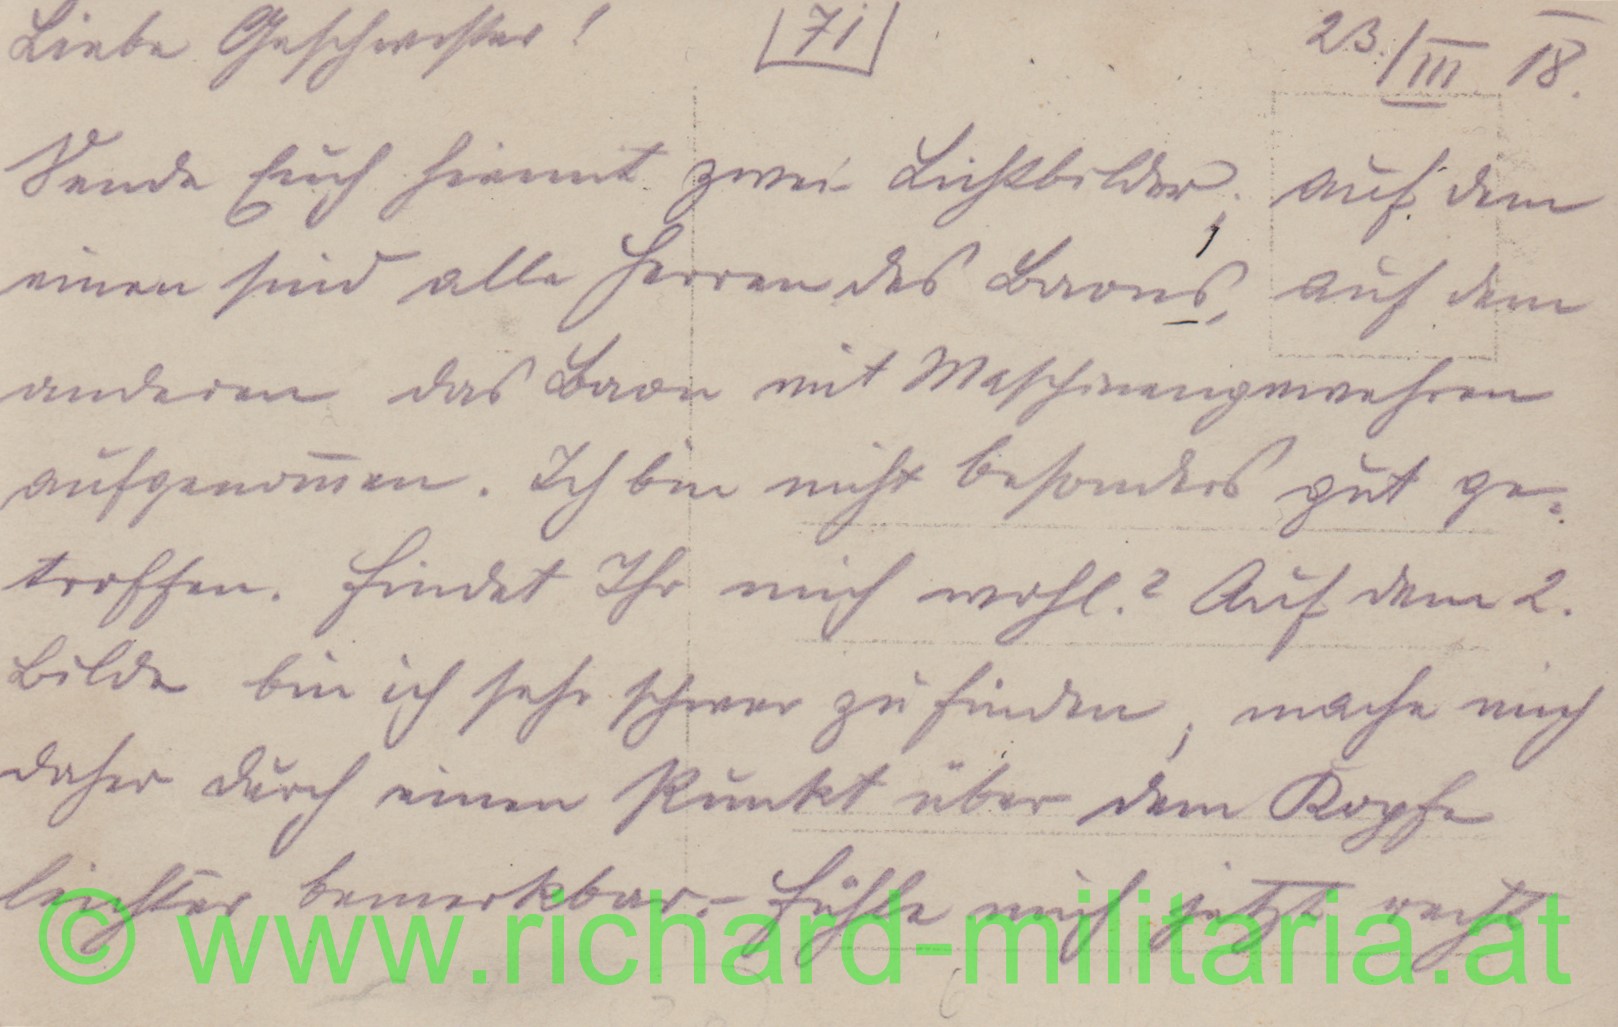 Liebe Geschwister! 71 23./III 18.
Sende Euch hiemit zwei Lichtbilder, auf dem
einen sind alle Herren des Baons, auf dem
anderen das Baon mit Maschinengewehren
aufgenom̅en. Ich bin nicht besonders gut ge-
troffen. Findet Ihr mich wohl.? Auf dem 2.
Bilde bin ich sehr schwer zu finden, mache mich
daher durch einen Punkt über dem Kopfe
leichter bemerkbar.- Fühle mich jetzt recht
© www.richard-militaria.at